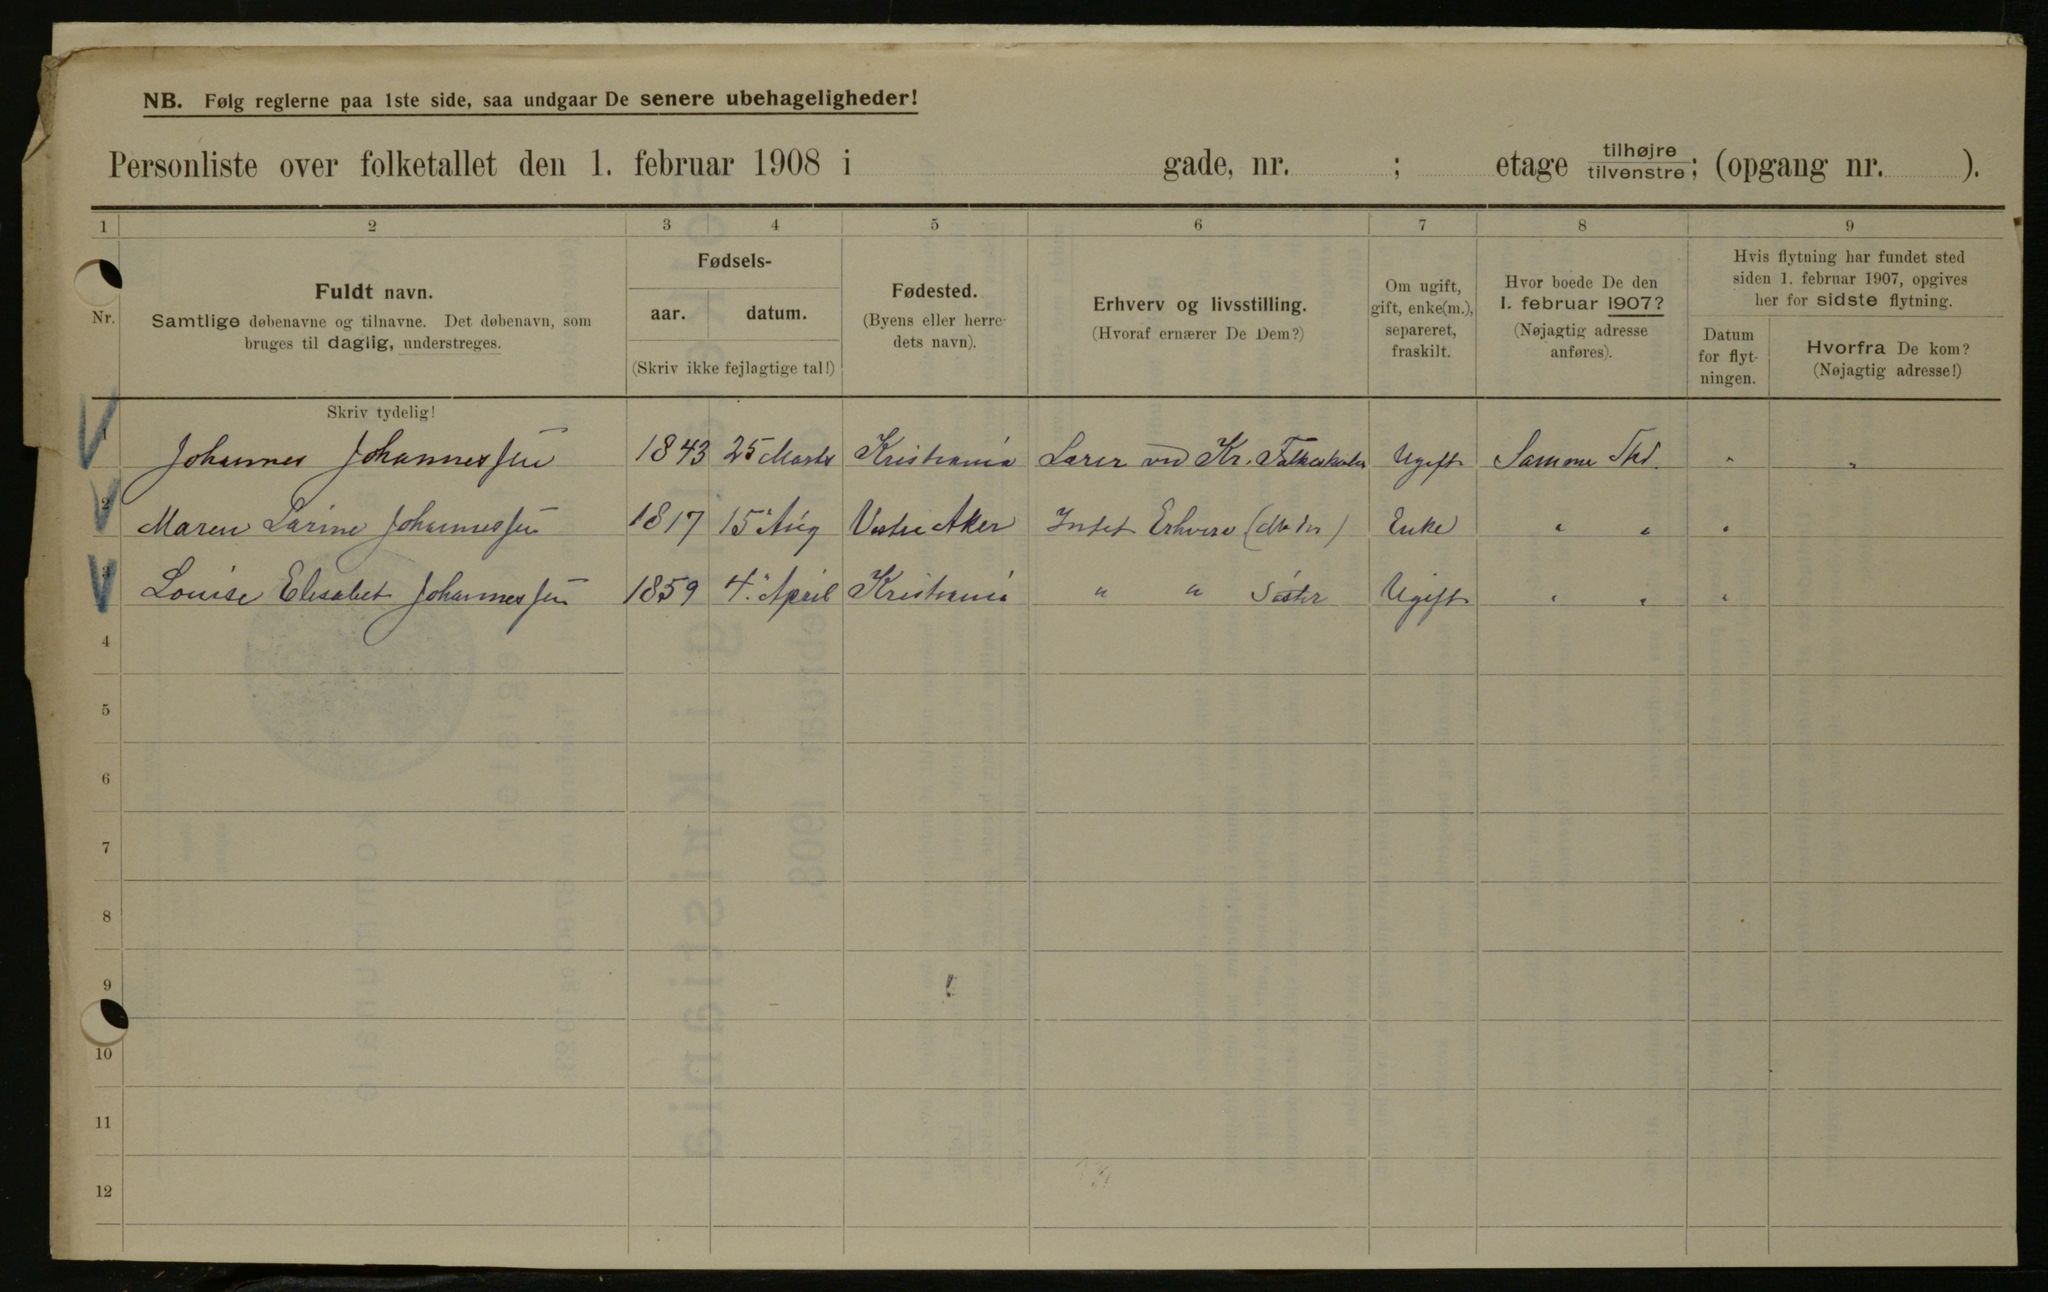 NB. Følg reglerne paa 1ste side, saa undgaar De senere ubehageligheder!
Personliste over folketallet den 1. februar 1908 i gade, nr. ; etage tilhøjre tilvenstre; (opgang nr. ).
1 2 3 4 5 6 7 8 9
Nr.
Fuldt navn.
Samtlige døbenavne og tilnavne. Det døbenavn, som
bruges til daglig, understreges.
Fødsels-
aar. datum.
(Skriv ikke fejlagtige tal!)
Fødested.
(Byens eller herre-
dets navn).
Erhverv og livsstilling.
(Hvoraf ernærer De Dem?)
Om ugift,
gift, enke(m.),
separeret,
fraskilt.
Hvor boede De den
1. februar 1907?
(Nøjagtig adresse
anføres).
Hvis flytning har fundet sted
siden 1. februar 1907, opgives
her for sidste flytning.
Datum
for flyt-
ningen.
Hvorfra De kom?
(Nøjagtig adresse!)
Skriv tydelig!
1 Johannes Johannessen 1843 25 Marts Kristiania Lærer ved Kr. Folkeskoler Ugift Samme Sted. " "
2 Maren Larine Johannessen 1817 15 Aug Vestre Aker Intet Erhverv (Moder) Enke " " "
3 Louise Elisabet Johannessen 1859 4. April Kristiania " " Søster Ugift " " "
4
5
6
7
8
9
10
11
12